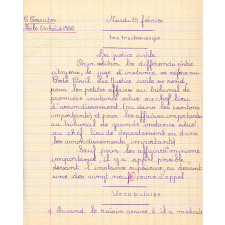 Mardi 25 février
Instruction civique
La justice civile
Pour régler les différends entre
citoyens, le juge d'instance se réfère au
Code Civil. La justice civile se rend,
pour les petites affaires au tribunal de
première instance situé au chef-lieu
d'arrondissement (ou dans les cantons
importants) et pour les affaires importantes
au tribunal de grande instance situé
au chef-lieu de département ou dans
les arrondissements importants.
Sauf pour les affaires minime
importance, il y a appel possible
devant l'instance supérieure, ou devant
une des vingt neuf cours d'appel.
Vocabulaire
Quand le train arrive à